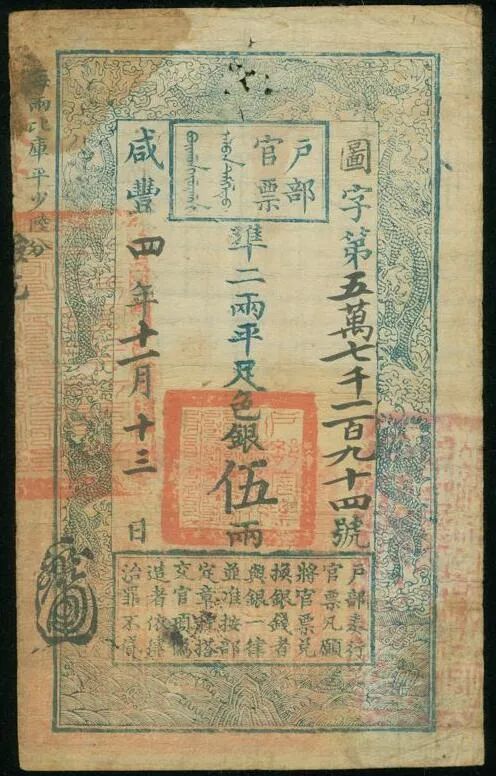 圖字第五萬七千一百九十四號
戶部
官票
準二兩平足色銀伍兩
咸豐四年十一月十三日
戶部奏行
官票凡願
將官票兌
換銀錢者
與銀一律
並准按部
定章程搭
交官項偽
造者依律
治罪不貸
每兩比庫平少陸分